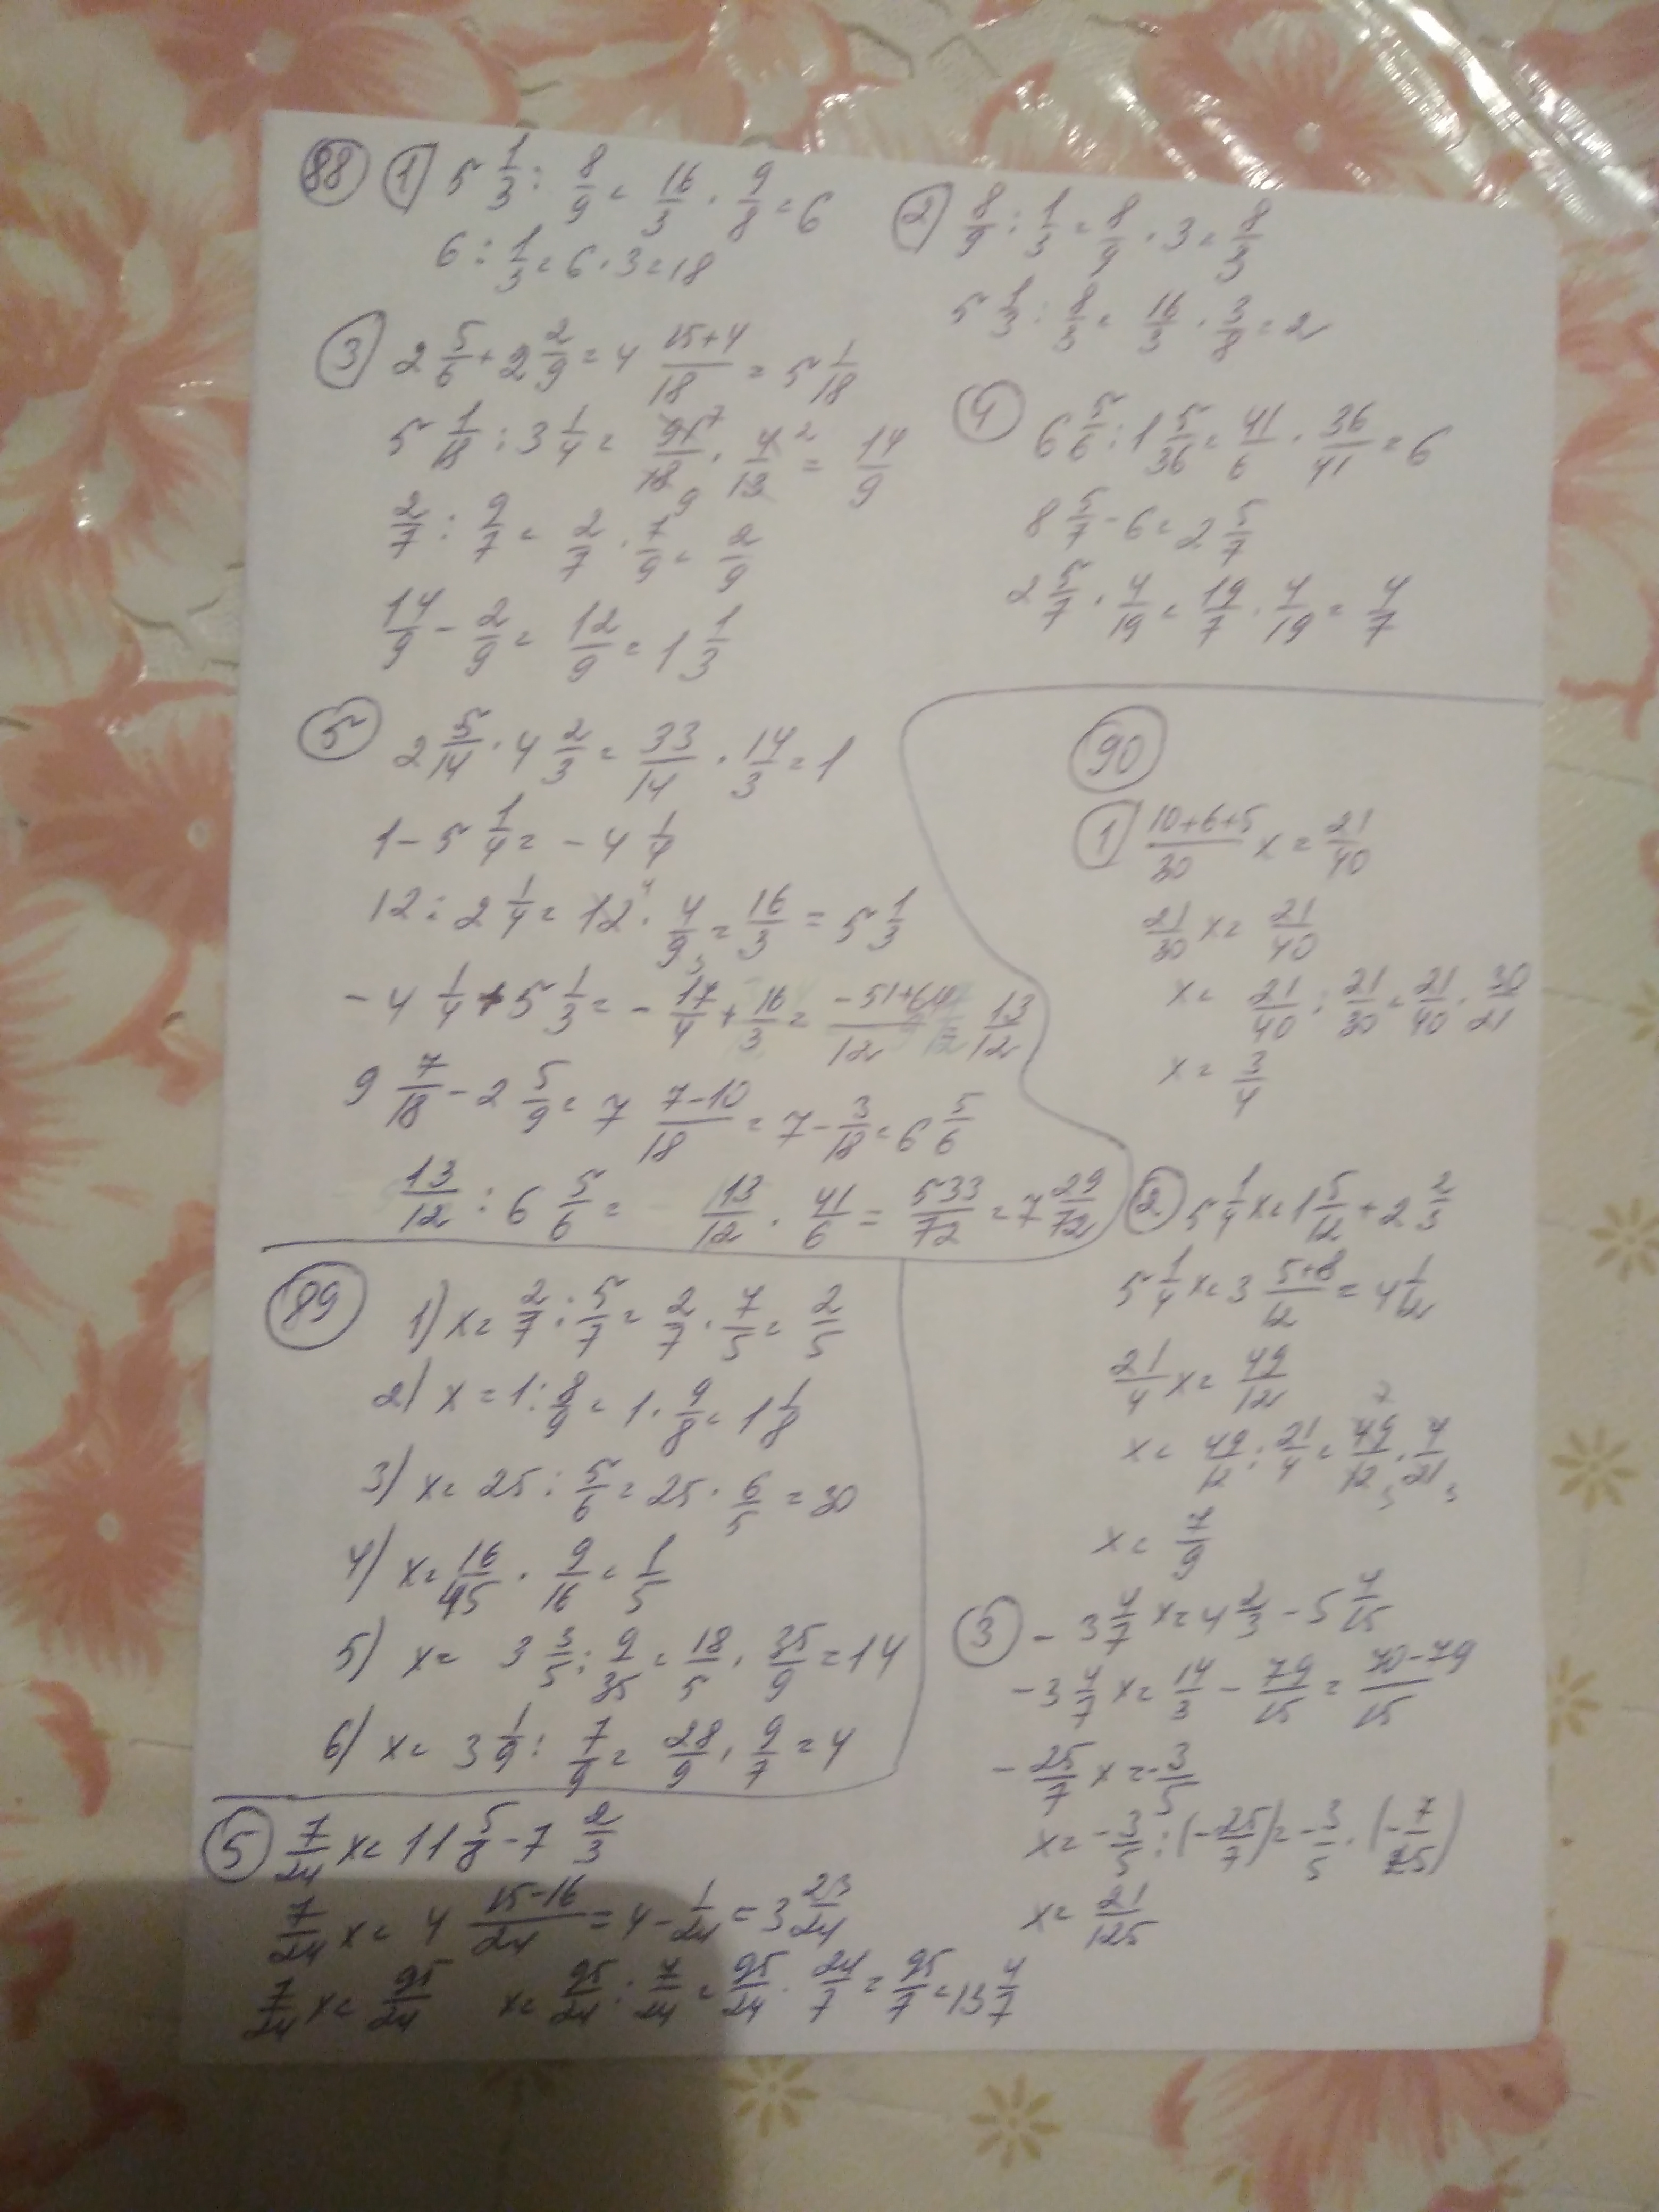 88 1) 5 1/3 : 8/9 = 16/3 · 9/8 = 6
6 : 1/3 = 6 · 3 = 18
2) 8/9 : 1/3 = 8/9 · 3 = 8/3
5 1/3 : 8/3 = 16/3 · 3/8 = 2
3) 2 5/6 + 2 2/9 = 4 (15+4)/18 = 5 1/18
5 1/18 : 3 1/4 = 91/18 · 4/13 = 14/9
2/7 : 9/7 = 2/7 · 7/9 = 2/9
14/9 - 2/9 = 12/9 = 1 1/3
4) 6 5/6 : 1 5/36 = 41/6 · 36/41 = 6
8 5/7 - 6 = 2 5/7
2 5/7 · 4/19 = 19/7 · 4/19 = 4/7
5) 2 5/14 · 4 2/3 = 33/14 · 14/3 = 1
1 - 5 1/4 = - 4 1/4
12 : 2 1/4 = 12 · 4/9 = 16/3 = 5 1/3
- 4 1/4 + 5 1/3 = - 17/4 + 16/3 = (-51+64)/12 = 13/12
9 7/18 - 2 5/9 = 7 (7-10)/18 = 7 - 3/18 = 6 5/6
13/12 : 6 5/6 = 13/12 · 41/6 = 533/72 = 7 29/72
89 1) x = 2/7 : 5/7 = 2/7 · 7/5 = 2/5
2) x = 1 : 8/9 = 1 · 9/8 = 1 1/8
3) x = 25 : 5/6 = 25 · 6/5 = 30
4) x = 16/45 · 9/16 = 1/5
5) x = 3 3/5 : 9/35 = 18/5 · 35/9 = 14
6) x = 3 1/9 : 7/9 = 28/9 · 9/7 = 4
90
1) (10+6+5)/30 x = 21/40
21/30 x = 21/40
x = 21/40 : 21/30 = 21/40 · 30/21
x = 3/4
2) 5 1/4 x = 1 5/12 + 2 2/3
5 1/4 x = 3 (5+8)/12 = 4 1/12
21/4 x = 49/12
x = 49/12 : 21/4 = 49/12 · 4/21
x = 7/9
3) - 3 4/7 x = 4 2/3 - 5 4/15
- 3 4/7 x = 14/3 - 79/15 = (70-79)/15
- 25/7 x = - 3/5
x = - 3/5 : (- 25/7) = - 3/5 · (- 7/25)
x = 21/125
5) 7/24 x = 11 5/8 - 7 2/3
7/24 x = 4 (15-16)/24 = 4 - 1/24 = 3 23/24
7/24 x = 95/24 x = 95/24 : 7/24 = 95/24 · 24/7 = 95/7 = 13 4/7